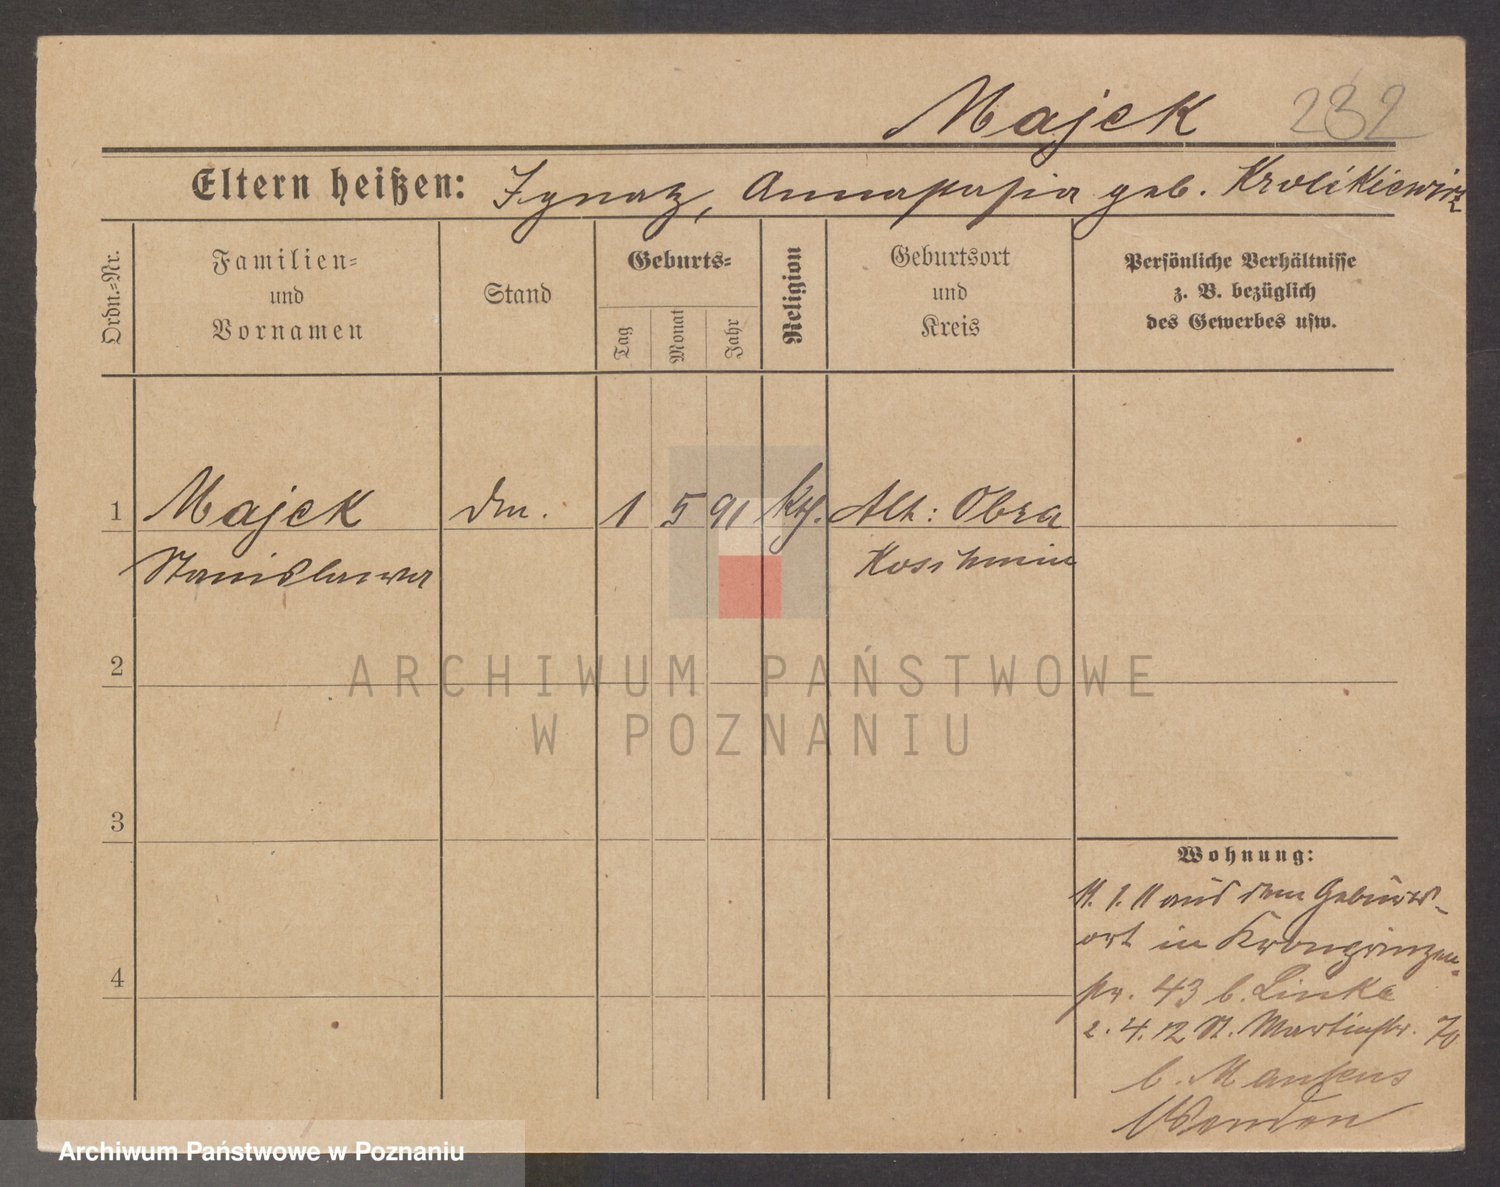 Majek 232
Eltern heißen: Ignatz, Annastasia geb. Krolikiewicz
Ordn.=Nr.
Familien=
und
Vornamen
Stand
Geburts=
Tag
Monat
Jahr
Religion
Geburtsort
und
Kreis
Persönliche Verhältnisse
z. B. bezüglich
des Gewerbes usw.
1 Majek Dm. 1 5 91 kth. Alt: Obra
Stanislawa Koschmin
2
ARCHIWUM PAŃSTWOWE
W POZNANIU
3
4
Wohnung:
11 aus dem Geburts-
ort in Kronprinzen-
str. 43 b. Linke
2. 4. 12 St. Martinstr. 70
b. Markus
Wenden
Archiwum Państwowe w Poznaniu